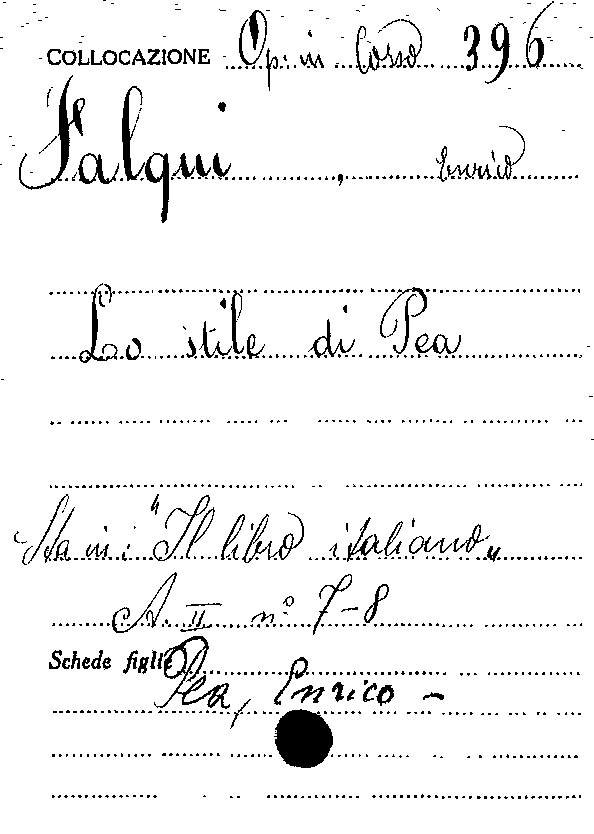 COLLOCAZIONE Op. in Corso 396
Falqui, Enrico
Lo stile di Pea
Sta in: "Il libro italiano„
A. II n.° 7-8
Schede figlie
Pea, Enrico -